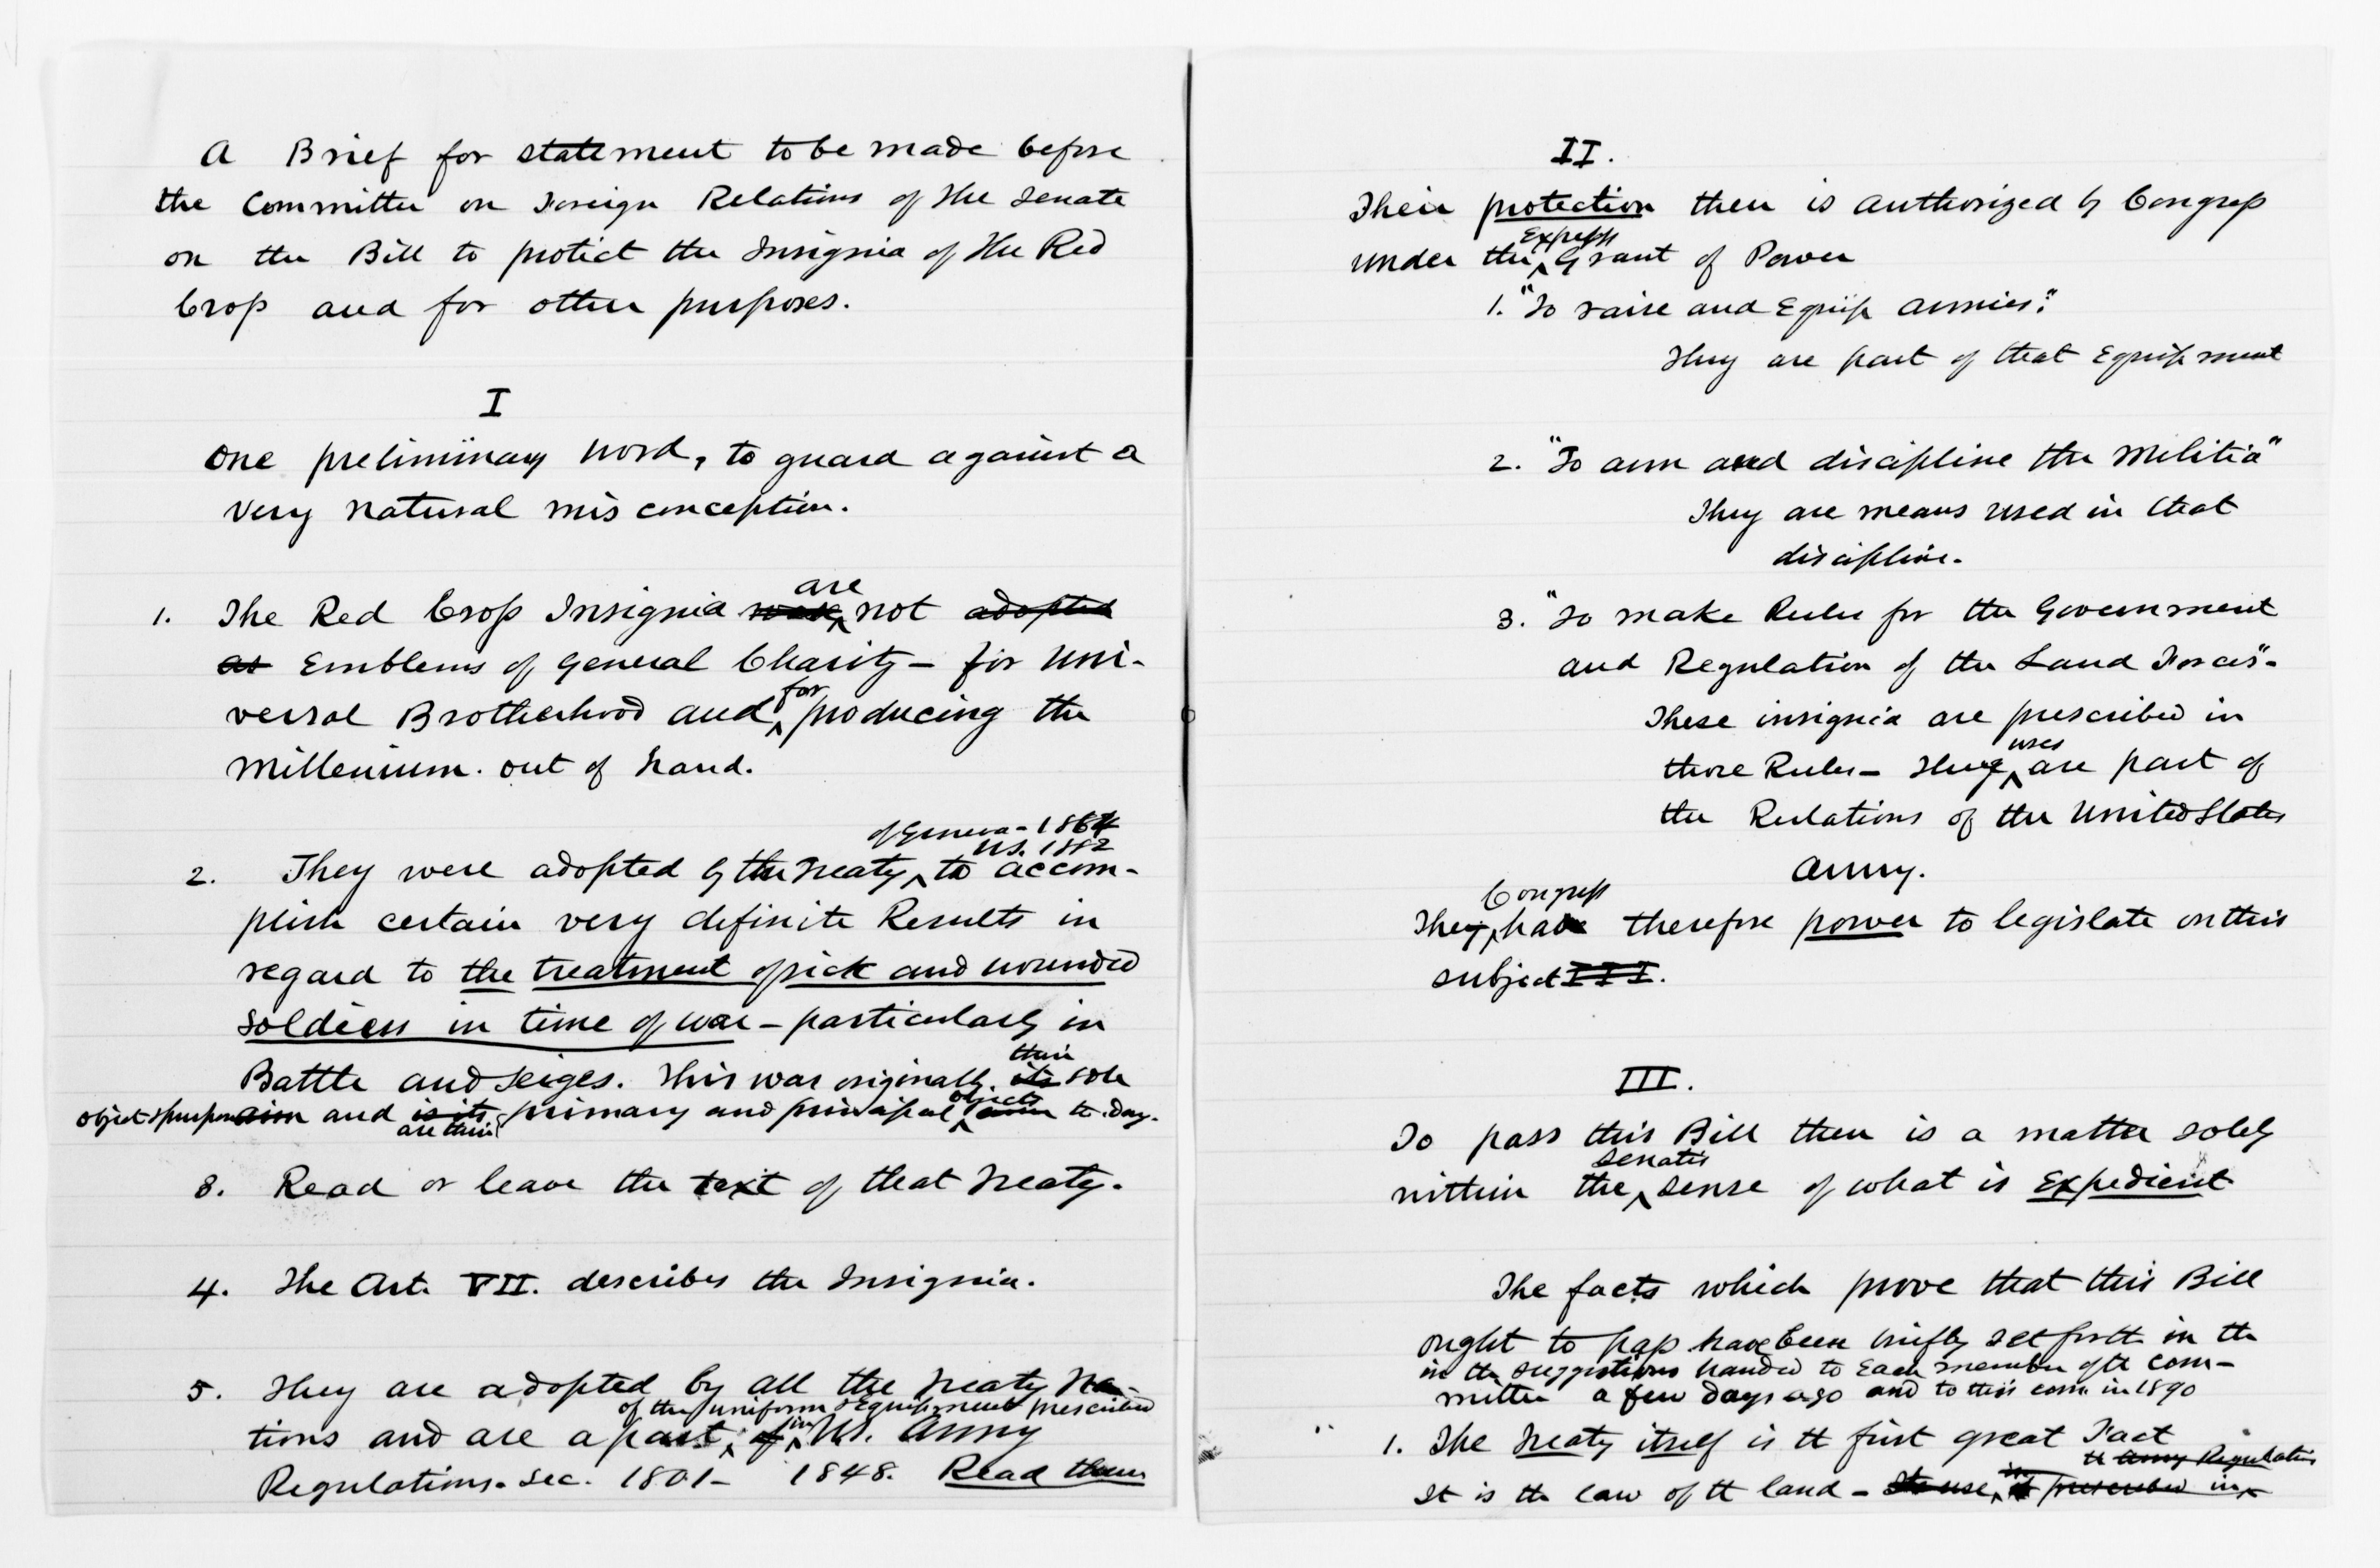 A Brief for statement to be made before
the Committee on Foreign Relations of the Senate
on the Bill to protect the Insignia of the Red
Cross and for other purposes.
I
One preliminary word, to guard against a
very natural misconception.
are
1. The Red Cross Insignia were not adopted
as Emblems of General Charity - for Uni-
for
versal Brotherhood and producing the
Millenium. out of hand.
of Geneva - 1864
U.S. 1882
2. They were adopted by the Treaty to accom-
plish certain very definite Results in
regard to the treatment of sick and wounded
soldiers in time of war - particularly in
their
Battle and Seiges. This was originally its sole
objects
object & purpose aim and is its primary and principal aim to day.
are their
3. Read or leave the text of that Treaty.
4. The Art. VII. describes the Insignia.
5. They are adopted by all the Treaty Na-
of the uniform & Equipment prescribed
in
tions and are a part of U.S. Army
Regulations. Sec. 1801- 1848. Read them
II.
Their protection then is authorized by Congress
Express
under the Grant of Power
1. "To raise and Equip Armies."
They are part of that Equipment
2. "To arm and discipline the Militia"
They are means used in that
discipline.
3. "To make Rules for the Government
and Regulation of the Land Forces".
These insignia are prescribed in
uses
those Rules - They are part of
the Rulations of the United States
Army.
Congress
They have therefore power to legislate on this
subject III.
III.
To pass this Bill then is a matter solely
Senates
within the sense of what is Expedient
The facts which prove that this Bill
ought to pass have been briefly set forth in the
in the suggestions handed to Each member of the Com-
mittee a few days ago and to this com. in 1890
1. The Treaty itself is the first great Fact
the Army Regulations
is
It is the law of the land - Its use it prescribed in